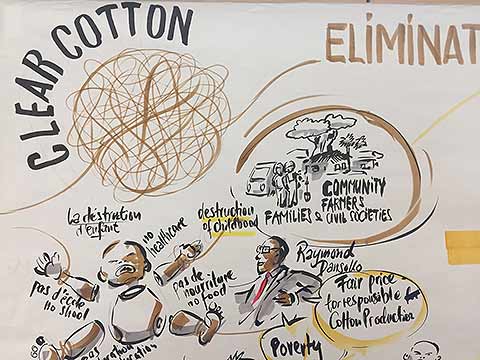 CLEAR COTTON
ELIMINAT
COMMUNITY
FARMERS
FAMILIES & CIVIL SOCIETIES
la déstrution
d'enfant
no
healthcare
destruction
of childhood
Raymond
pas d'école
no shool
pas de
nourriture
no food
Fair price
for responsible
Cotton Production
Poverty